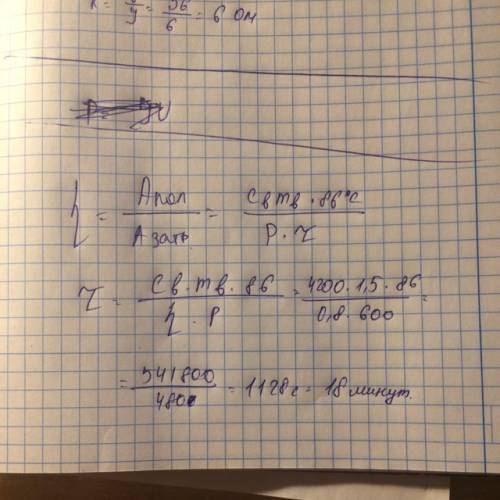 R = U/I = 36/6 = 6 Ом
η = Aпол/Aзатр. = Cв mв · 86°C/P · τ
τ = Cв · mв · 86/η · P = 4200 · 1,5 · 86/0,8 · 600 =
= 541800/480 = 1128 с = 18 минут.